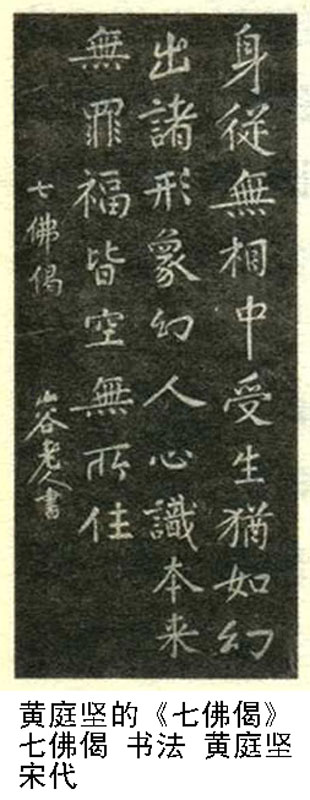 身從無相中受生猶如幻
出諸形象幻人心識本来
無罪福皆空無所住
七佛偈 山谷老人書
黄庭坚的《七佛偈》
七佛偈 书法 黄庭坚
宋代